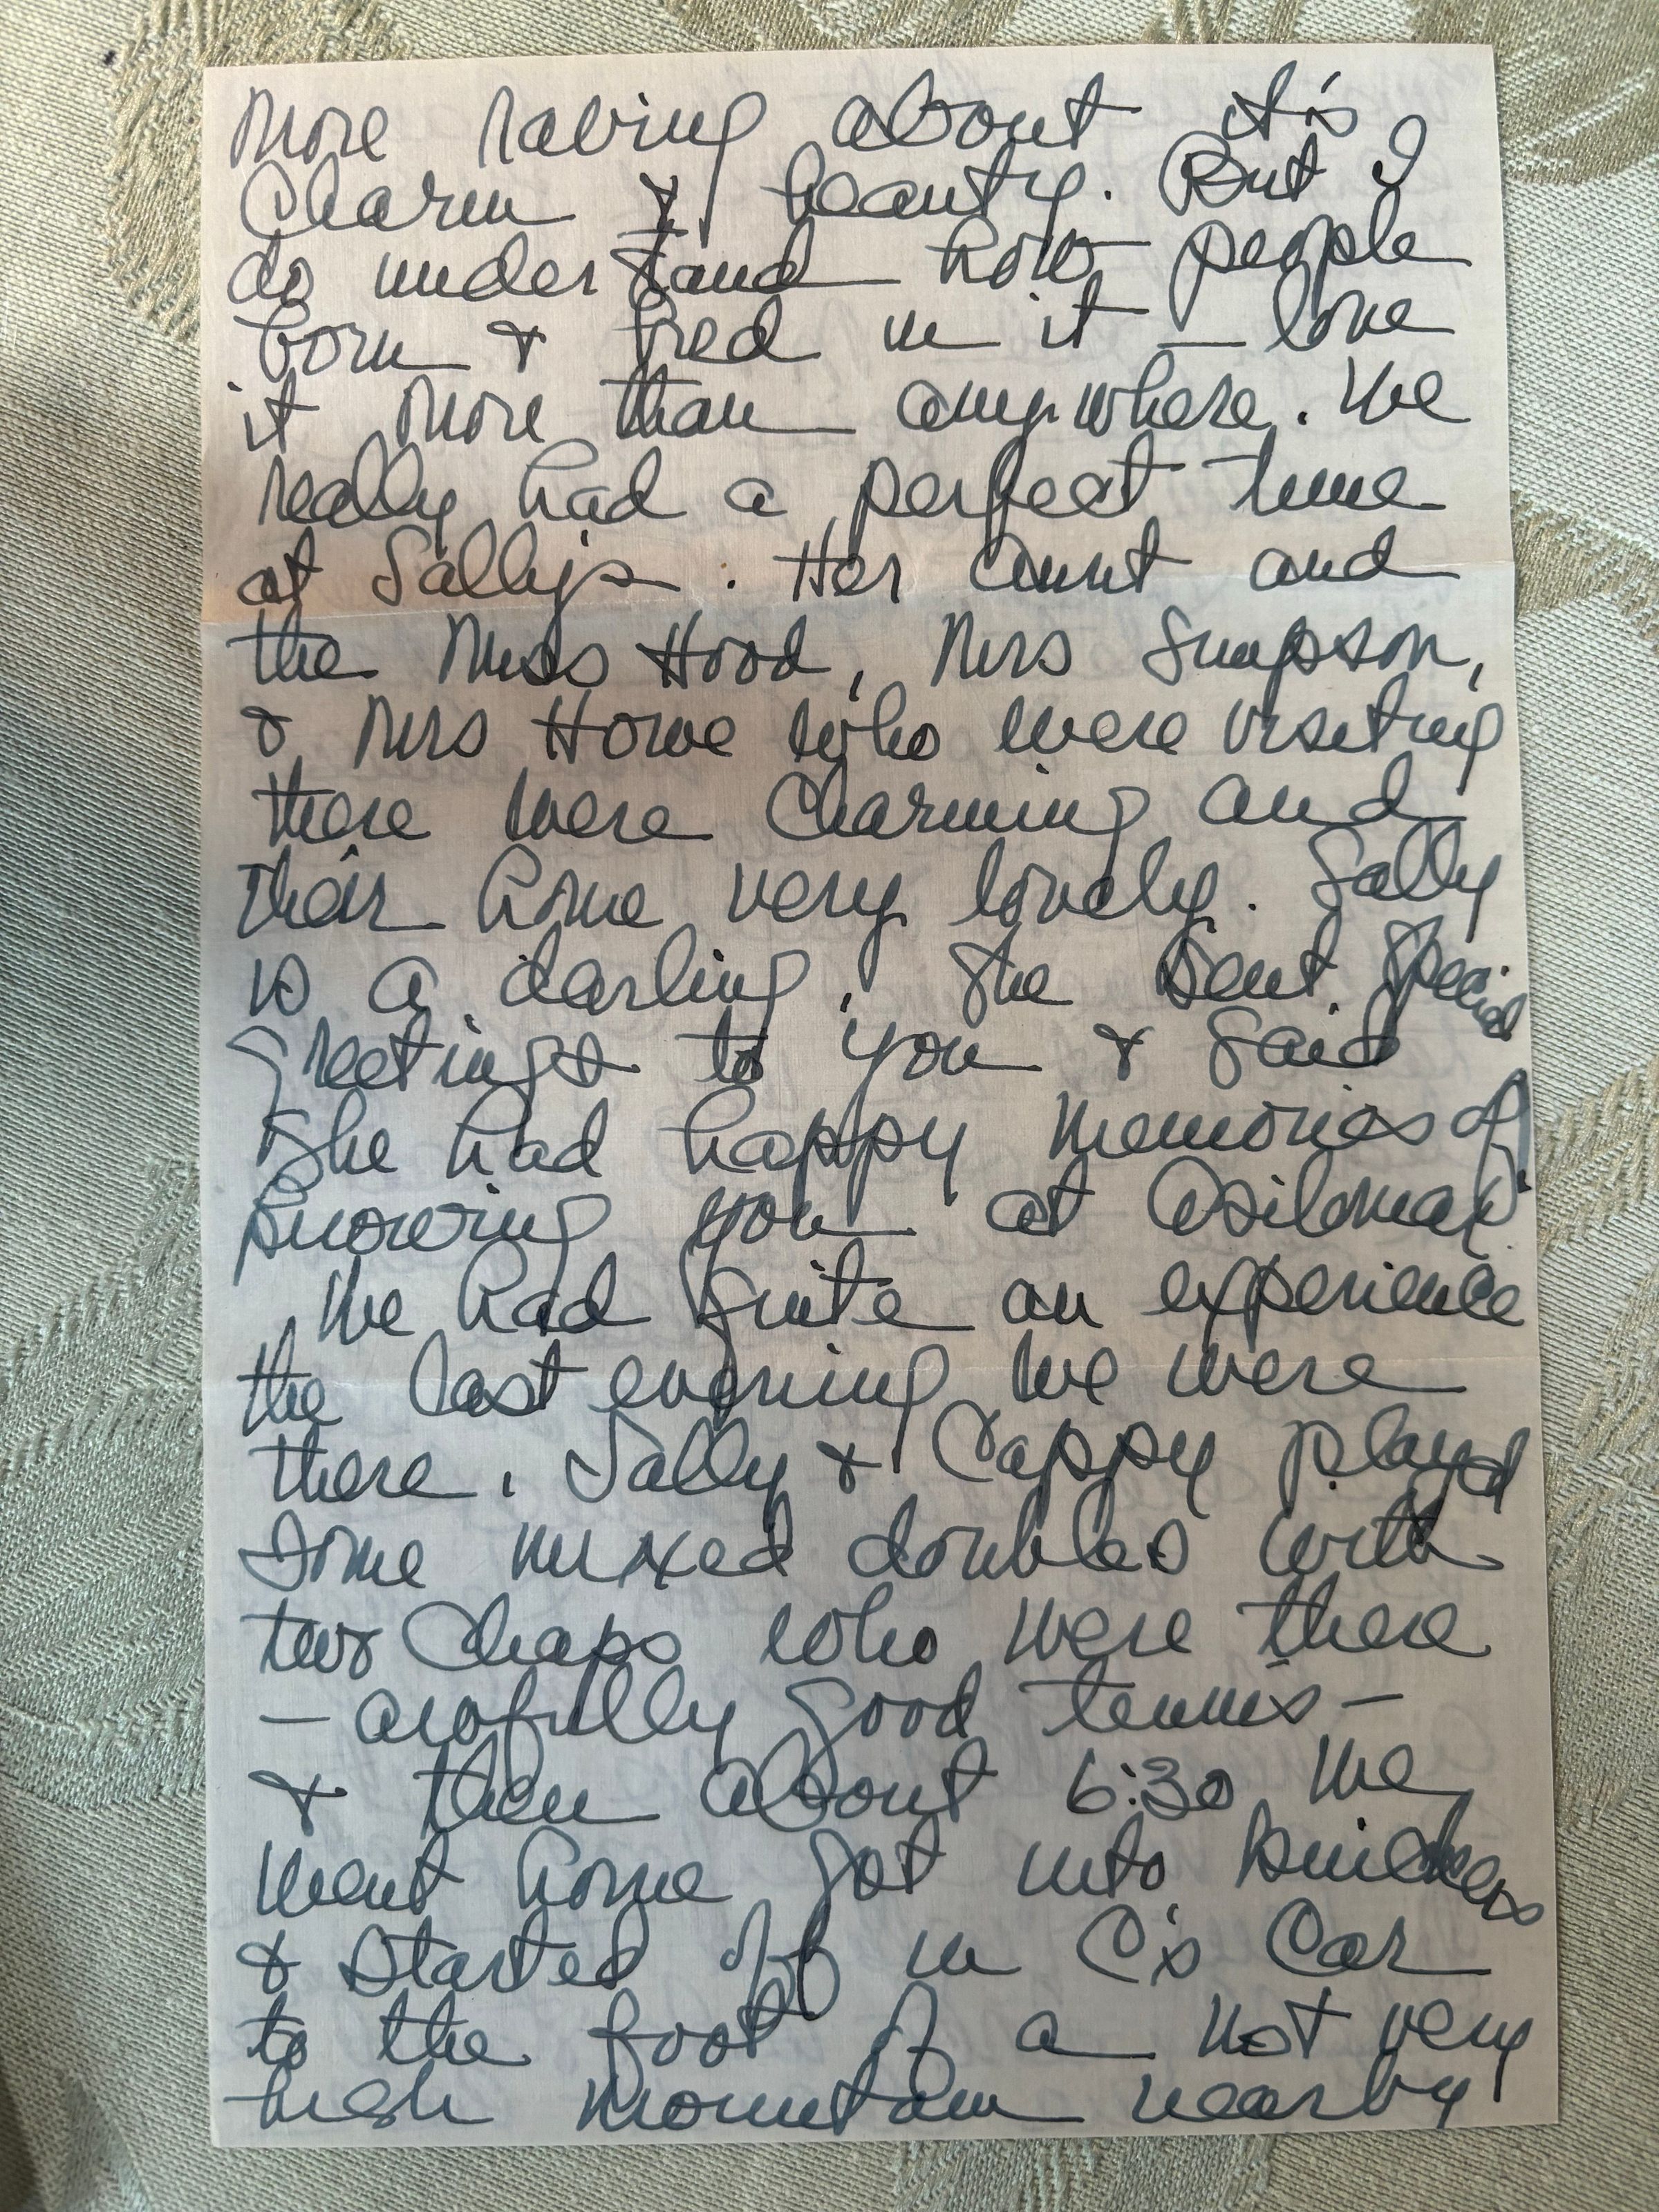 more raving about it's
charm & beauty. But I
do understand how people
born & bred in it — love
it more than anywhere. We
really had a perfect time
at Sally's. Her Aunt and
the Miss Hood, Mrs Simpson,
& Mrs Howe who were visiting
there were charming and
their home very lovely. Sally
is a darling. She sent special
greetings to you & said
she had happy memories of
knowing you at Asilomar.
We had quite an experience
the last evening we were
there. Sally & Cappy played
some mixed doubles with
two chaps who were there
— awfully good tennis —
& then about 6:30 we
went home got into knickers
& started off in C's car
to the foot of a not very
high mountain nearby